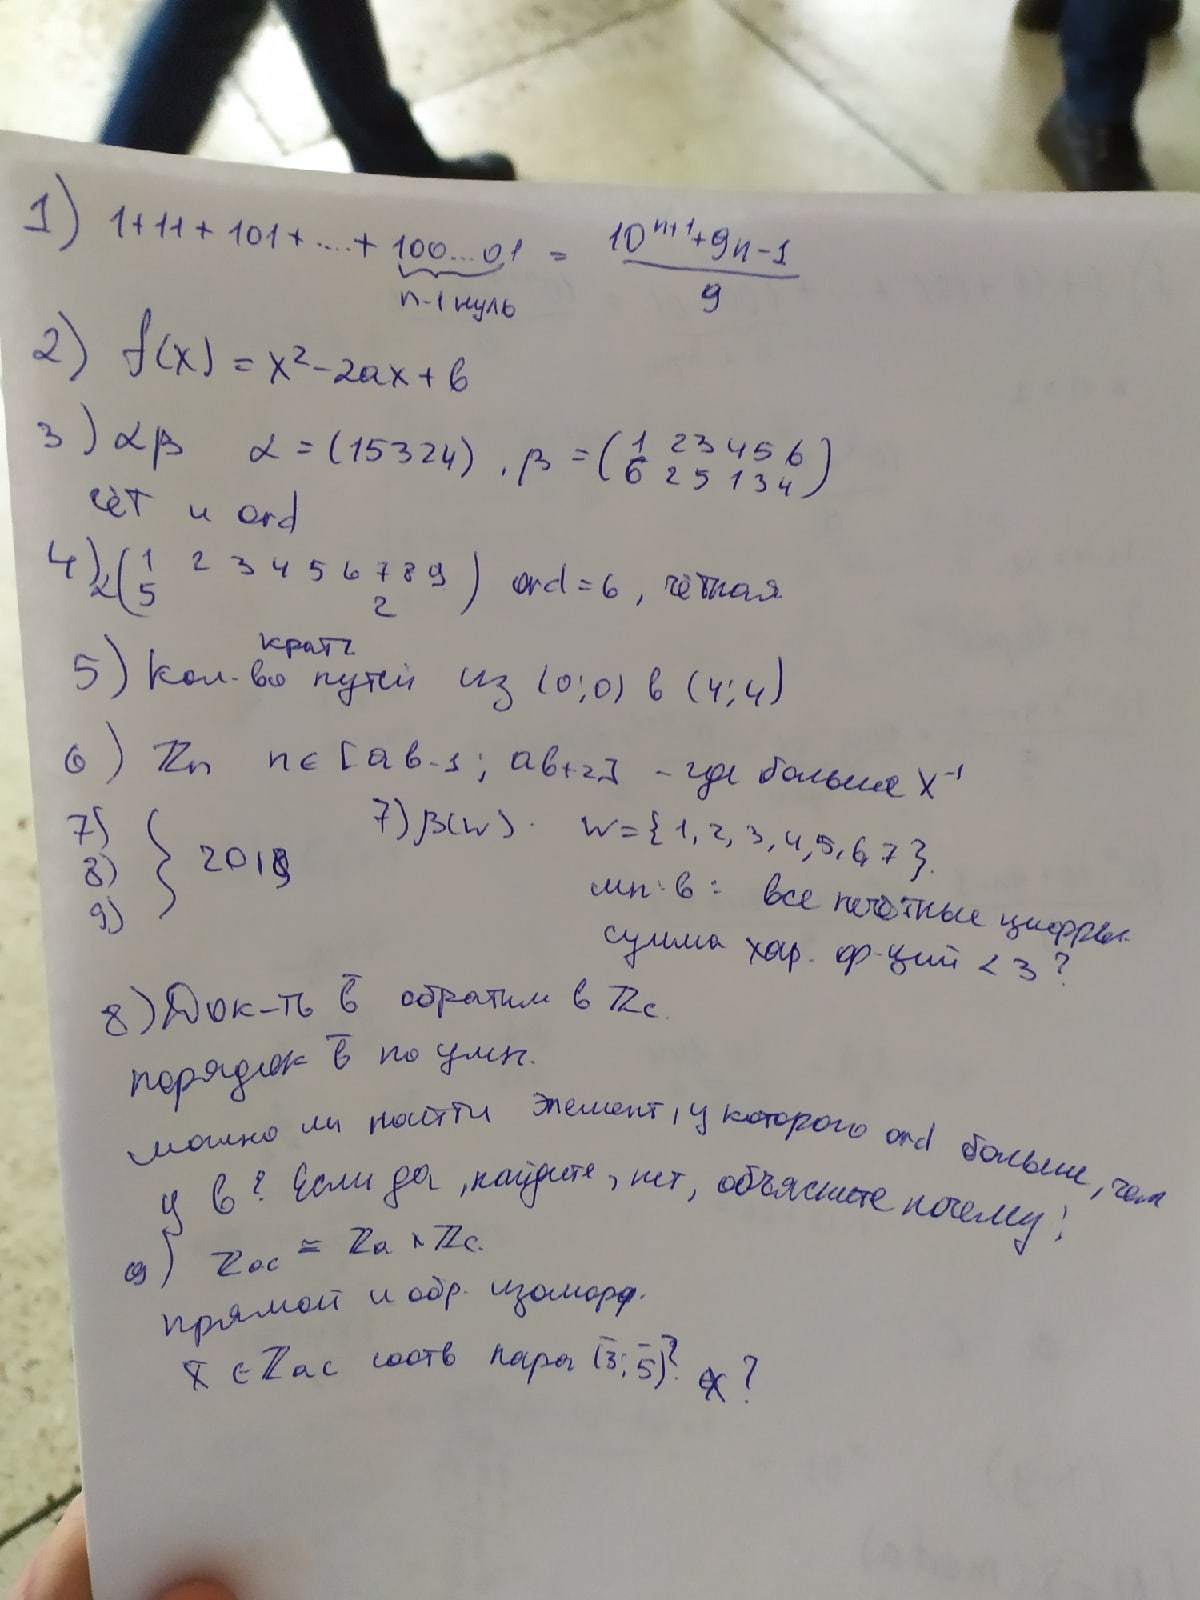 1) 1+11+101+....+ 100...01 = 10^{n+1}+9n-1 / 9
n-1 нуль
2) f(x) = x²-2ax+b
3) αβ α = (15324), β = (1 2 3 4 5 6
6 2 5 1 3 4)
чёт и ord
4) α(1 2 3 4 5 6 7 8 9
5 2) ord=6, чётная
кратч
5) Кол-во путей из (0;0) в (4;4)
6) ℤn n∈[ab-1; ab+2] - где больше x⁻¹
7) 7) β(W). W={1,2,3,4,5,6,7}.
8) } 2018
9)
мн-в: все нечётные цифры
сумма хар. ф-ций < 3?
8) Док-ть b̄ обратим в ℤc.
порядок b̄ по умн.
можно ли найти элемент, у которого ord больше, чем
у b? Если да, найдите, нет, объясните почему?
9) ℤac ≅ ℤa × ℤc.
прямой и обр. изоморф.
x̄ ∈ ℤac соотв пара (3̄; 5̄)? x?